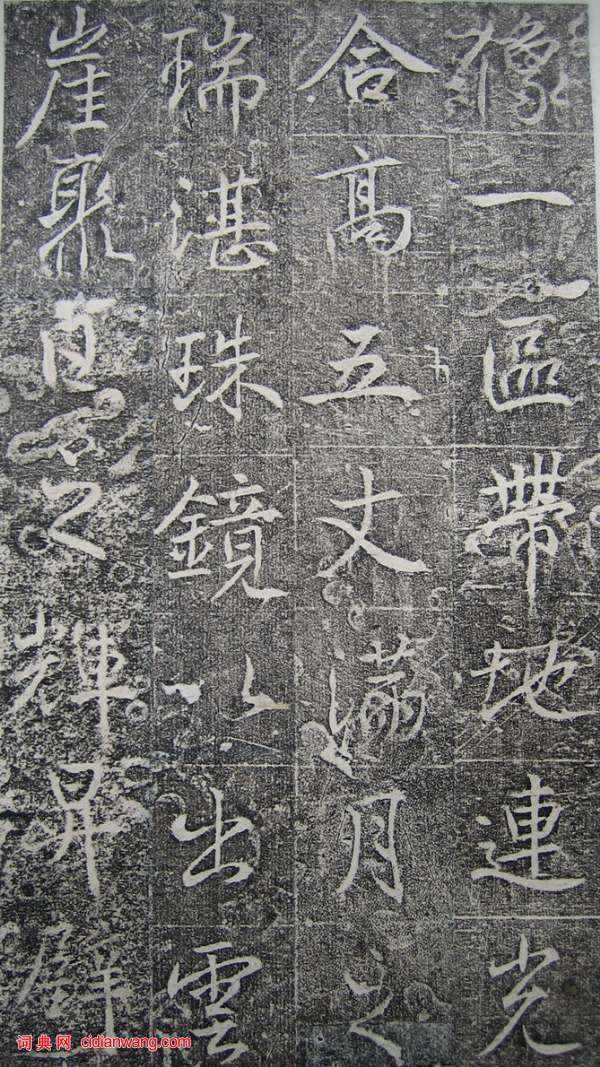 像一區帶地連光
合高五丈滿月之
瑞湛珠鏡以出雲
崖聚日之輝昇璧
词典网 cidianwang.com